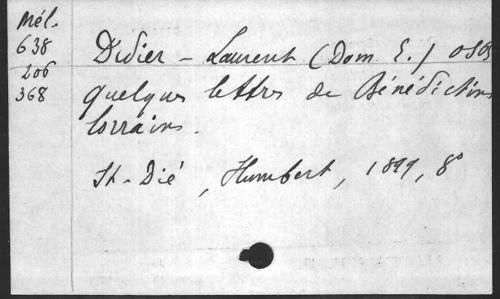 Mél.
638
206
368
Didier - Laurent (Dom E.) OSB
quelques lettres de Bénédictins
lorrains.
St-Dié, Humbert, 1899, 8°